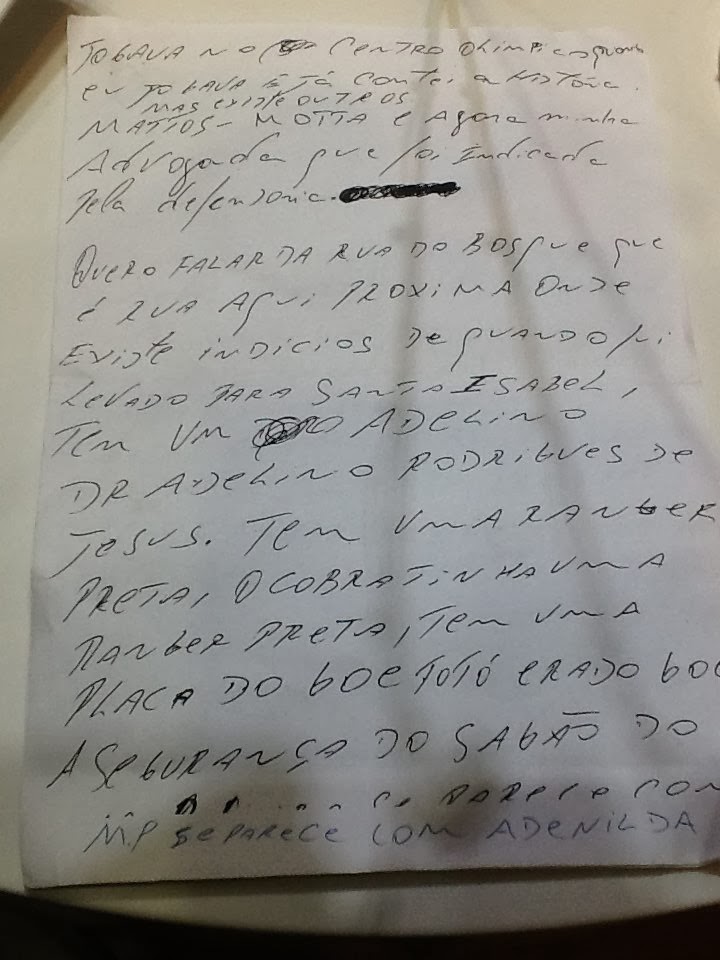 JOGAVA NO CENTRO OLIMPICO, quando
eu JOGAVA E JÁ contei a HISTÓRIA.
MAS EXISTE OUTROS
MATTOS - MOTTA e Agora minha
Advogada que foi Indicada
pela defensoria.
QUERO FALAR DA RUA DO BOSque que
é RUA AQUI PROXIMA ONDE
Existe INDICIOS DE QUANDO fui
LEVADO PARA SANTA ISABEL,
TEM UM ADELINO
DR ADELINO RODRIGUES DE
JESUS. TEM UMA RANGER
PRETA, O COBRA TINHA UMA
RANGER PRETA, TEM UMA
PLACA DO GOE TOTÓ ERA DO GOE
A SEGURANÇA DO SABÃO DO
PARECE COM
M.P SE PARECE COM ADENILDA